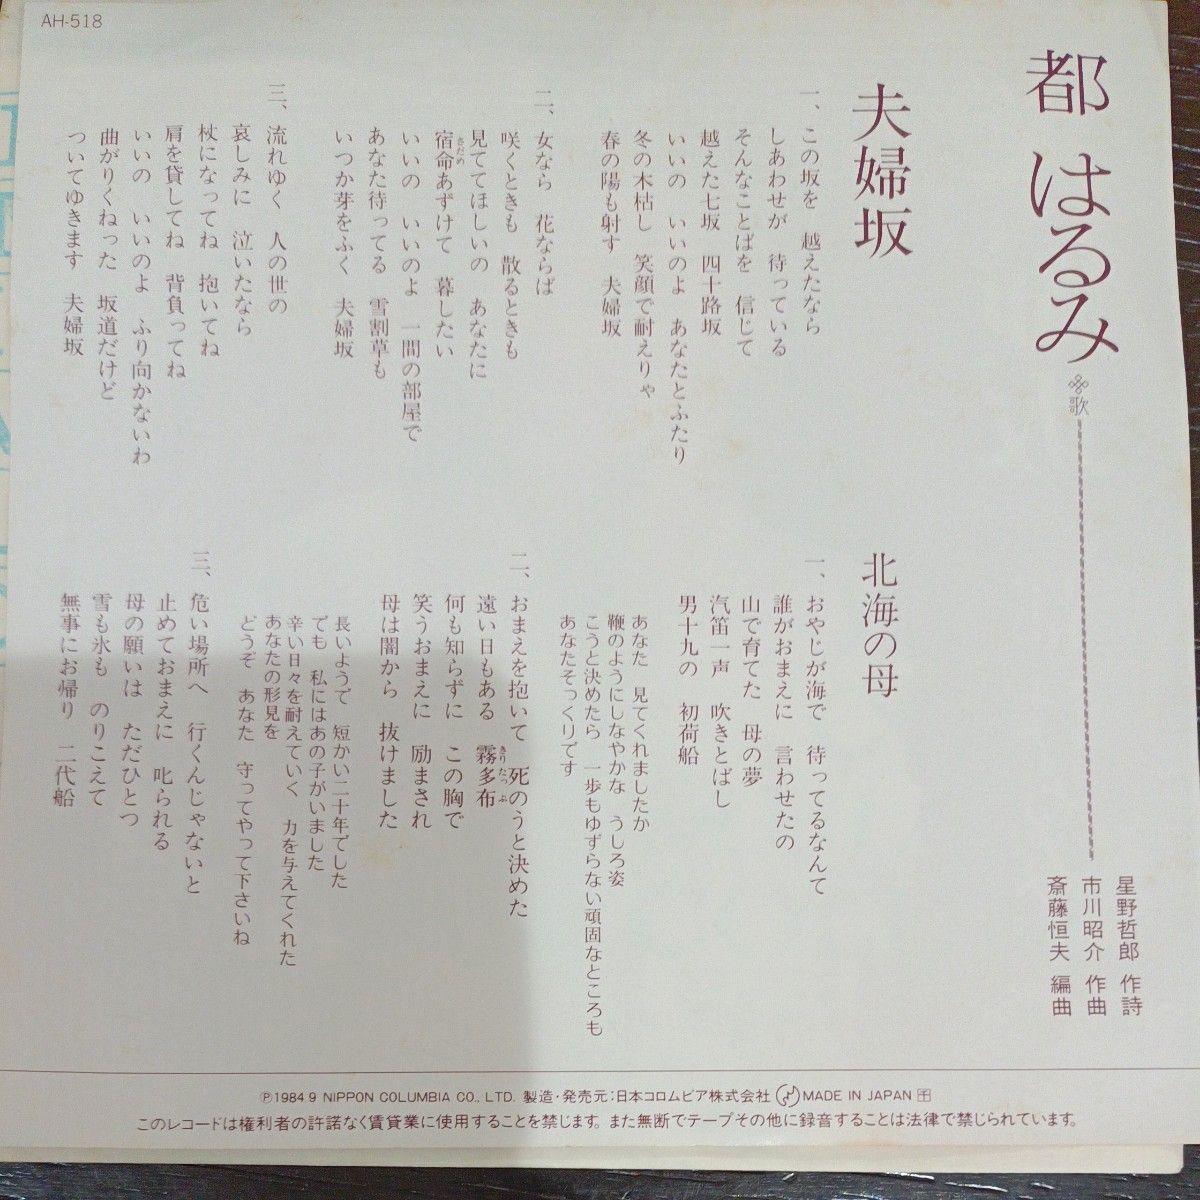 AH-518
都はるみ
歌
星野哲郎 作詩
市川昭介 作曲
斎藤恒夫 編曲
夫婦坂
一、この坂を 越えたなら
しあわせが 待っている
そんなことばを 信じて
越えた七坂 四十路坂
いいの いいのよ あなたとふたり
冬の木枯し 笑顔で耐えりゃ
春の陽も射す 夫婦坂
二、女なら 花ならば
咲くときも 散るときも
見ててほしいの あなたに
宿命あずけて 暮したい
さだめ
いいの いいのよ 一間の部屋で
あなた待ってる 雪割草も
いつか芽をふく 夫婦坂
三、流れゆく 人の世の
哀しみに 泣いたなら
杖になってね 抱いてね
肩を貸してね 背負ってね
いいの いいのよ ふり向かないわ
曲がりくねった 坂道だけど
ついてゆきます 夫婦坂
北海の母
一、おやじが海で 待ってるなんて
誰がおまえに 言わせたの
山で育てた 母の夢
汽笛一声 吹きとばし
男十九の 初荷船
あなた 見てくれましたか
鞭のようにしなやかな うしろ姿
こうと決めたら 一歩もゆずらない頑固なところも
あなたそっくりです
二、おまえを抱いて 死のうと決めた
遠い日もある 霧多布
きりたっぷ
何も知らずに この胸で
笑うおまえに 励まされ
母は闇から 抜けました
長いようで 短かい二十年でした
でも 私にはあの子がいました
辛い日々を耐えていく 力を与えてくれた
あなたの形見を
どうぞ あなた 守ってやって下さいね
三、危い場所へ 行くんじゃないと
止めておまえに 叱られる
母の願いは ただひとつ
雪も氷も のりこえて
無事にお帰り 二代船
Ⓟ1984.9 NIPPON COLUMBIA CO., LTD. 製造・発売元:日本コロムビア株式会社 MADE IN JAPAN
このレコードは権利者の許諾なく賃貸業に使用することを禁じます。また無断でテープその他に録音することは法律で禁じられています。